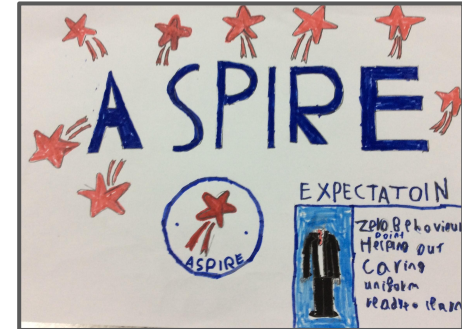 ASPIRE
ASPIRE
EXPECTATOIN
Zero Behaviour
Point
Helping out
Caring
uniform
ready to learn